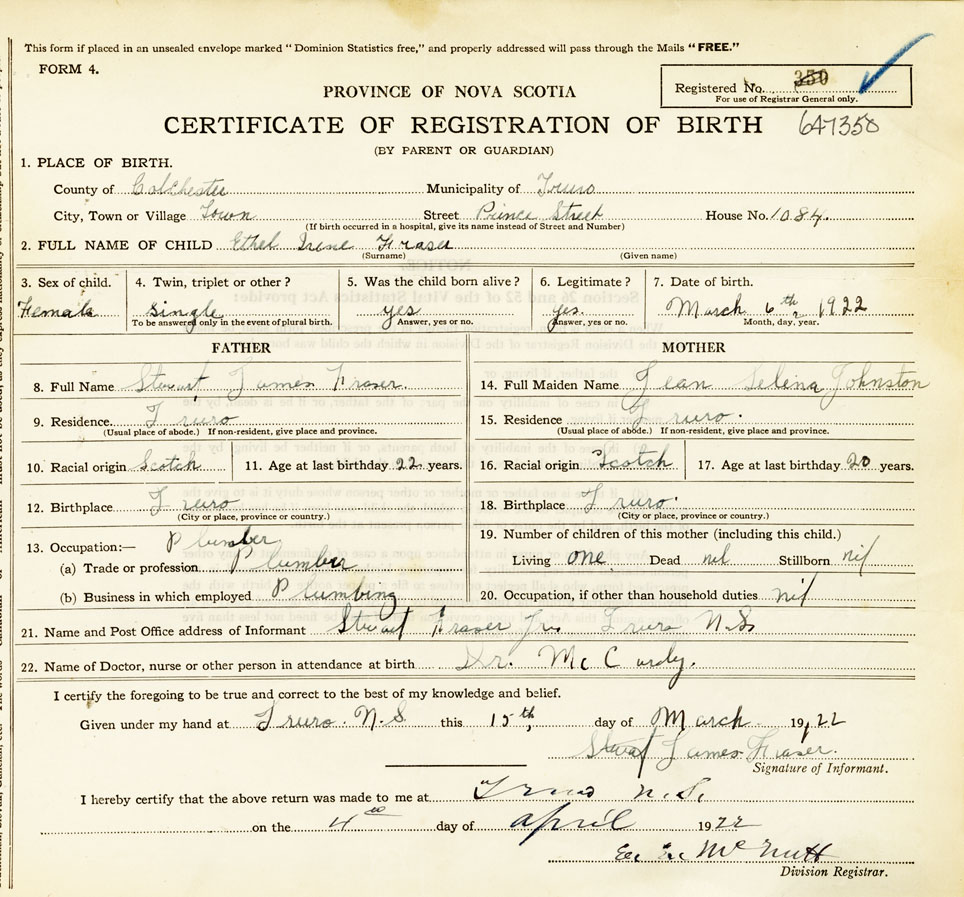 This form if placed in an unsealed envelope marked "Dominion Statistics free," and properly addressed will pass through the Mails "FREE."
FORM 4.
Registered No. 350
For use of Registrar General only.
PROVINCE OF NOVA SCOTIA
CERTIFICATE OF REGISTRATION OF BIRTH 647350
(BY PARENT OR GUARDIAN)
1. PLACE OF BIRTH.
County of Colchester Municipality of Truro
City, Town or Village Town Street Prince Street House No. 1084.
(If birth occurred in a hospital, give its name instead of Street and Number)
2. FULL NAME OF CHILD Ethel Irene Fraser
(Surname) (Given name)
3. Sex of child. 4. Twin, triplet or other? 5. Was the child born alive? 6. Legitimate? 7. Date of birth.
Female single yes yes. March 6th, 1922
To be answered only in the event of plural birth. Answer, yes or no. Answer, yes or no. Month, day, year.
FATHER MOTHER
8. Full Name Stewart James Fraser. 14. Full Maiden Name Jean Selena Johnston
9. Residence. Truro 15. Residence Truro.
(Usual place of abode.) If non-resident, give place and province. (Usual place of abode.) If non-resident, give place and province.
10. Racial origin Scotch 11. Age at last birthday 22 years. 16. Racial origin Scotch 17. Age at last birthday 20 years.
12. Birthplace Truro 18. Birthplace Truro.
(City or place, province or country.) (City or place, province or country.)
13. Occupation:— Plumber 19. Number of children of this mother (including this child.)
(a) Trade or profession Plumber Living one Dead nil Stillborn nil
(b) Business in which employed Plumbing 20. Occupation, if other than household duties nil
21. Name and Post Office address of Informant Stewart Fraser Jr. Truro N.S.
22. Name of Doctor, nurse or other person in attendance at birth Dr. McCurdy.
I certify the foregoing to be true and correct to the best of my knowledge and belief.
Given under my hand at Truro. N.S this 15th, day of March 1922
Stewart James Fraser.
Signature of Informant.
I hereby certify that the above return was made to me at Truro N.S.
on the 4th day of April 1922
McNutt
Division Registrar.